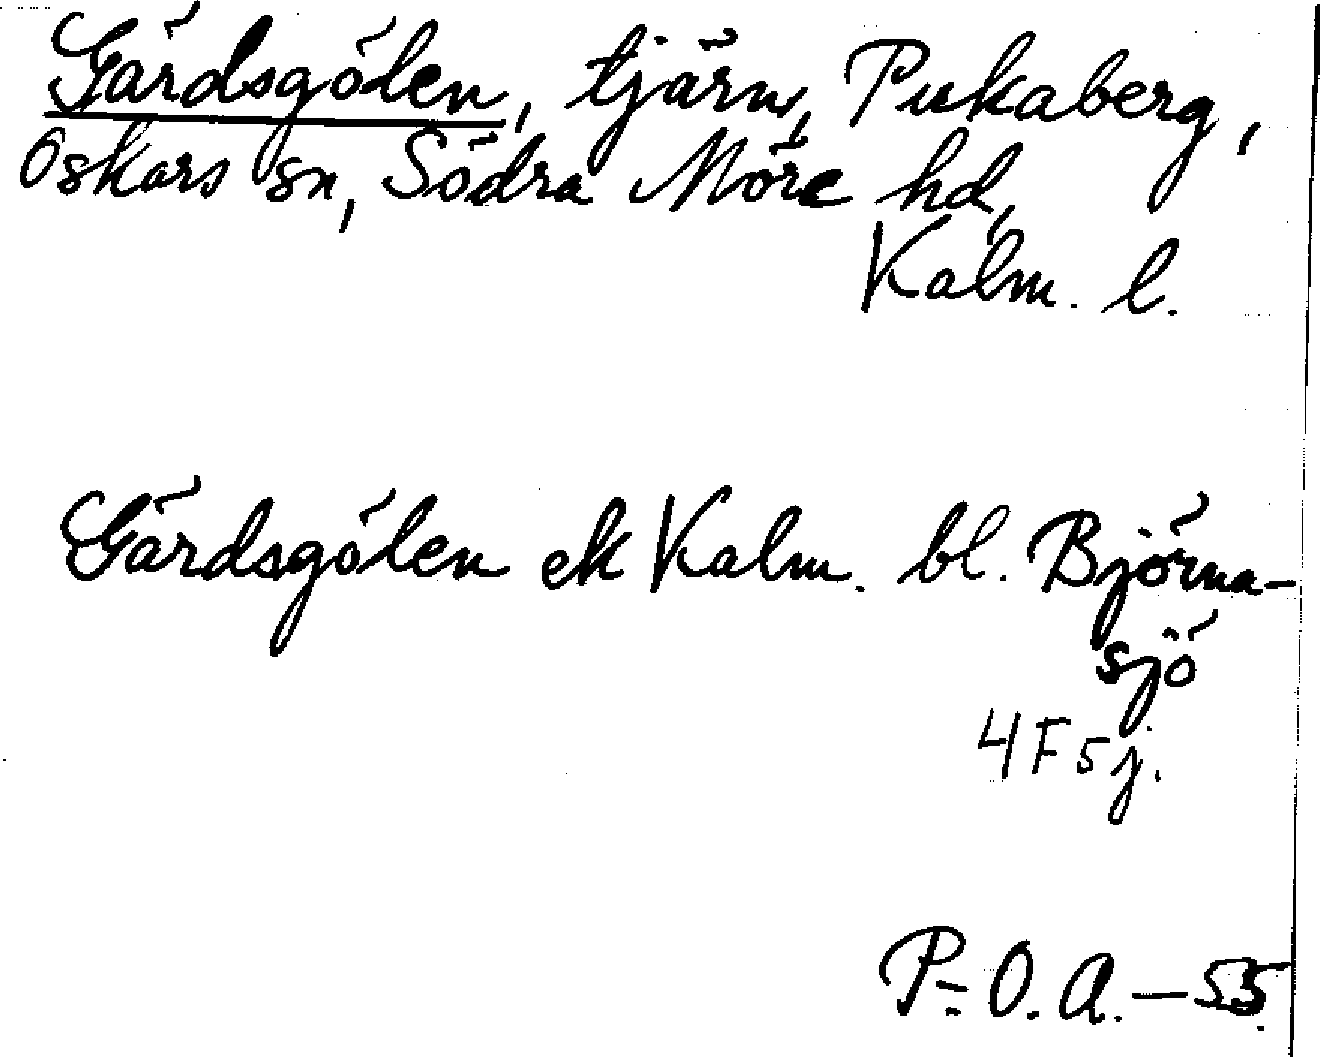 Gärdsgölen, tjärn, Pukaberg,
Oskars sn, Södra Möre hd,
Kalm. l.
Gärdsgölen ek Kalm. bl. Björna-
sjö
4F5j.
P.-O.A.–55.